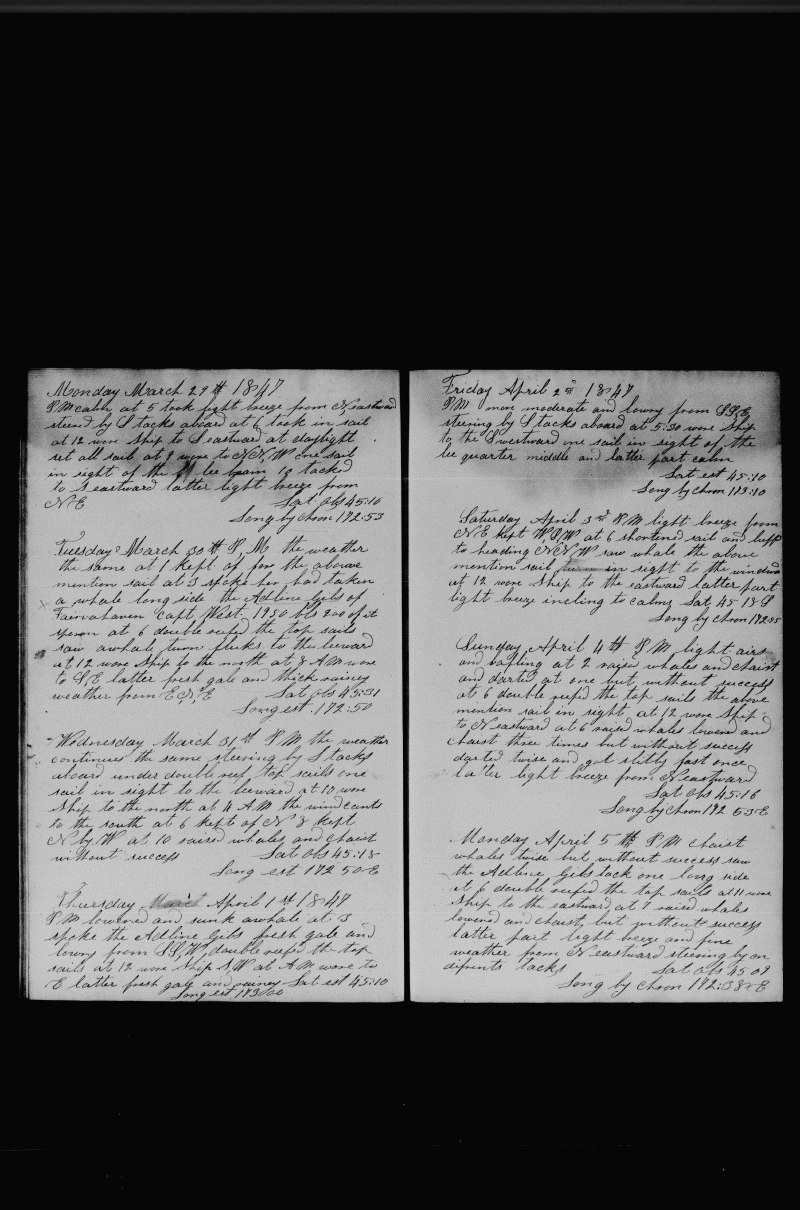 Monday March 29th 1847
P M calm at 5 took light breeze from N eastward
steerd by S tacks aboard at 6 took in sail
at 12 wore ship to S eastward at daylight
set all sail at 8 wore to N N W one sail
in sight of the lee beam 10 tacked
to S eastward latter light breeze from
N E Lat obs 45:10
Long by chron 172:53
Tuesday March 30th P M the weather
the same at 1 kept of for the above
mention sail at 3 spoke her had taken
a whale long side the Adline Gibs of
Fairhaven Capt West. 1950 bls 200 of it
sperm at 6 double reefed the top sails
saw a whale turn fluks to the leward
at 12 wore ship to the north at 8 A M wore
to S E latter fresh gale and thick rainey
weather from E S E Lat obs 45:31
Long est 172:50
Wednesday March 31st P M the weather
continues the same steering by S tacks
aboard under double reef top sails one
sail in sight to the leeward at 10 wore
ship to the north at 4 A M the wind cants
to the south at 6 kept of N 8 kept
N by W at 10 raised whales and chaist
without success Lat obs 45:18
Long est 172 50 E
Thursday April 1st 1847
P M lowered and sunk a whale at 3
spoke the Adline Gibs fresh gale and
lowry from S S W double reefed the top
sails at 12 wore ship S W at A M wore to
E latter fresh gale and rainey Lat est 45:10
Long est 173:00
Friday April 2nd 1847
P M more moderate and lowry from S S E
steering by S tacks aboard at 5:30 wore ship
to the S westward one sail in sight of the
lee quarter middle and latter part calm
Lat est 45:10
Long by chron 173:10
Saturday April 3rd P M light breeze from
N E kept W S W at 6 shortened sail and luff
to heading N N W saw whale the above
mention sail in sight to the windward
at 12 wore ship to the eastward latter part
light breeze incling to calms Lat 45 18 S
Long by chron 172:35
Sunday April 4th P M light airs
and bafling at 2 raised whales and chaist
and darted at one but without success
at 6 double reefd the top sails the above
mention sail in sight at 12 wore ship
to N eastward at 6 raised whales lowered and
chaist three times but without success
darted twise and got slitly fast once
later light breeze from N eastward
Lat obs 45:16
Long by chron 172 53 E
Monday April 5th P M chaist
whales twise but without success saw
the Adline Gibs took one long side
at 6 double reefed the top sails at 11 wore
ship to the eastward at 7 raised whales
lowered and chaist but without success
latter part light breeze and fine
weather from N eastward steering by on
difrents tacks Lat obs 45 09
Long by chron 172:38 E